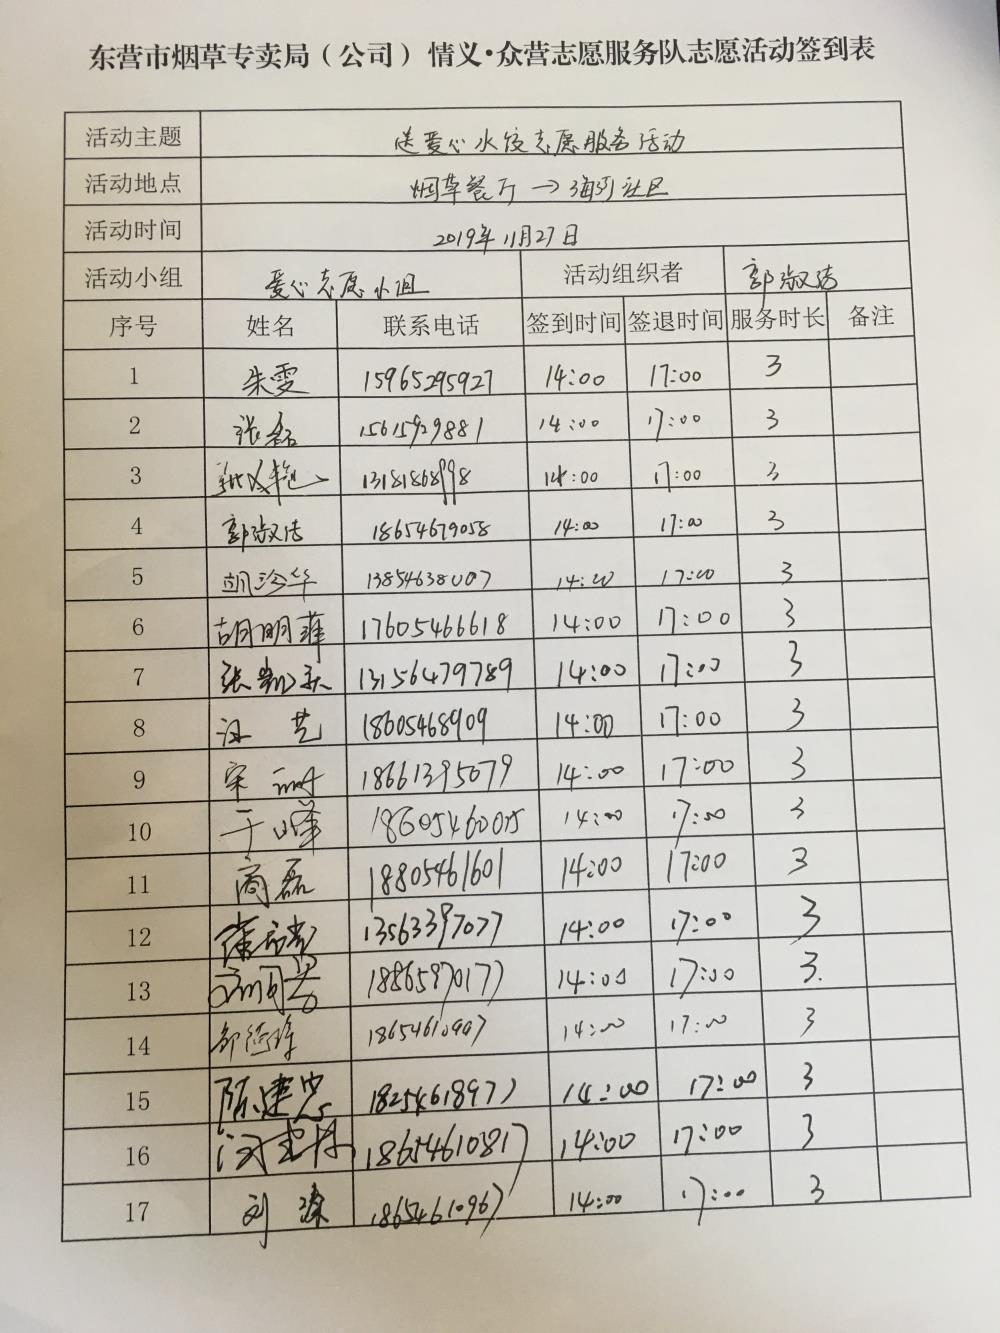 东营市烟草专卖局（公司）情义·众营志愿服务队志愿活动签到表
活动主题 送爱心水饺志愿服务活动
活动地点 烟草餐厅→海河社区
活动时间 2019年11月27日
活动小组 爱心志愿小组 活动组织者 郭淑洁
序号 姓名 联系电话 签到时间 签退时间 服务时长 备注
1 朱雯 15965295927 14:00 17:00 3
2 张磊 15615929881 14:00 17:00 3
3 13181868998 14:00 17:00 3
4 郭淑洁 18654679058 14:00 17:00 3
5 胡沙华 13854638007 14:00 17:00 3
6 胡明菲 17605466618 14:00 17:00 3
7 张凯跃 13156479789 14:00 17:00 3
8 汪艺 18605468909 14:00 17:00 3
9 宋 18661395079 14:00 17:00 3
10 于峰 18605460005 14:00 17:00 3
11 商磊 18805461601 14:00 17:00 3
12 13563397077 14:00 17:00 3
13 18865970177 14:00 17:00 3.
14 18654610907 14:00 17:00 3
15 陈建忠 18254618977 14:00 17:00 3
16 18654610817 14:00 17:00 3
17 刘 18654610967 14:00 17:00 3